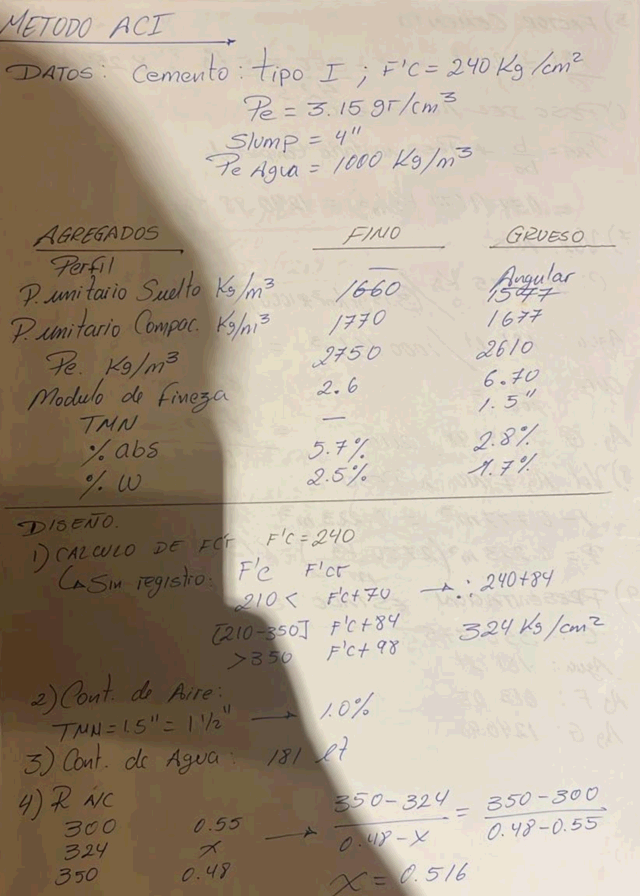 METODO ACI
DATOS: Cemento: tipo I ; F'C = 240 Kg/cm²
Pe = 3.15 gr/cm³
Slump = 4"
Pe Agua = 1000 Kg/m³
AGREGADOS FINO GRUESO
Perfil — Angular
P. unitario Suelto Kg/m³ 1660 1577
P. unitario Compac. Kg/m³ 1770 1677
Pe. Kg/m³ 2750 2610
Modulo de Fineza 2.6 6.70
TMN — 1.5"
% abs 5.7% 2.8%
% W 2.5% 1.7%
DISEÑO.
1) CALCULO DE FCr F'C = 240
↳ Sin registro: F'C F'Cr
210 < F'C+70 → ∴ 240+84
[210-350] F'C+84 324 Kg/cm²
>350 F'C+98
2) Cont. de Aire:
TMN = 1.5" = 1 1/2" → 1.0%
3) Cont. de Agua: 181 lt
4) R A/C
300 0.55
324 x → (350-324)/(0.48-x) = (350-300)/(0.48-0.55)
350 0.48 x = 0.516